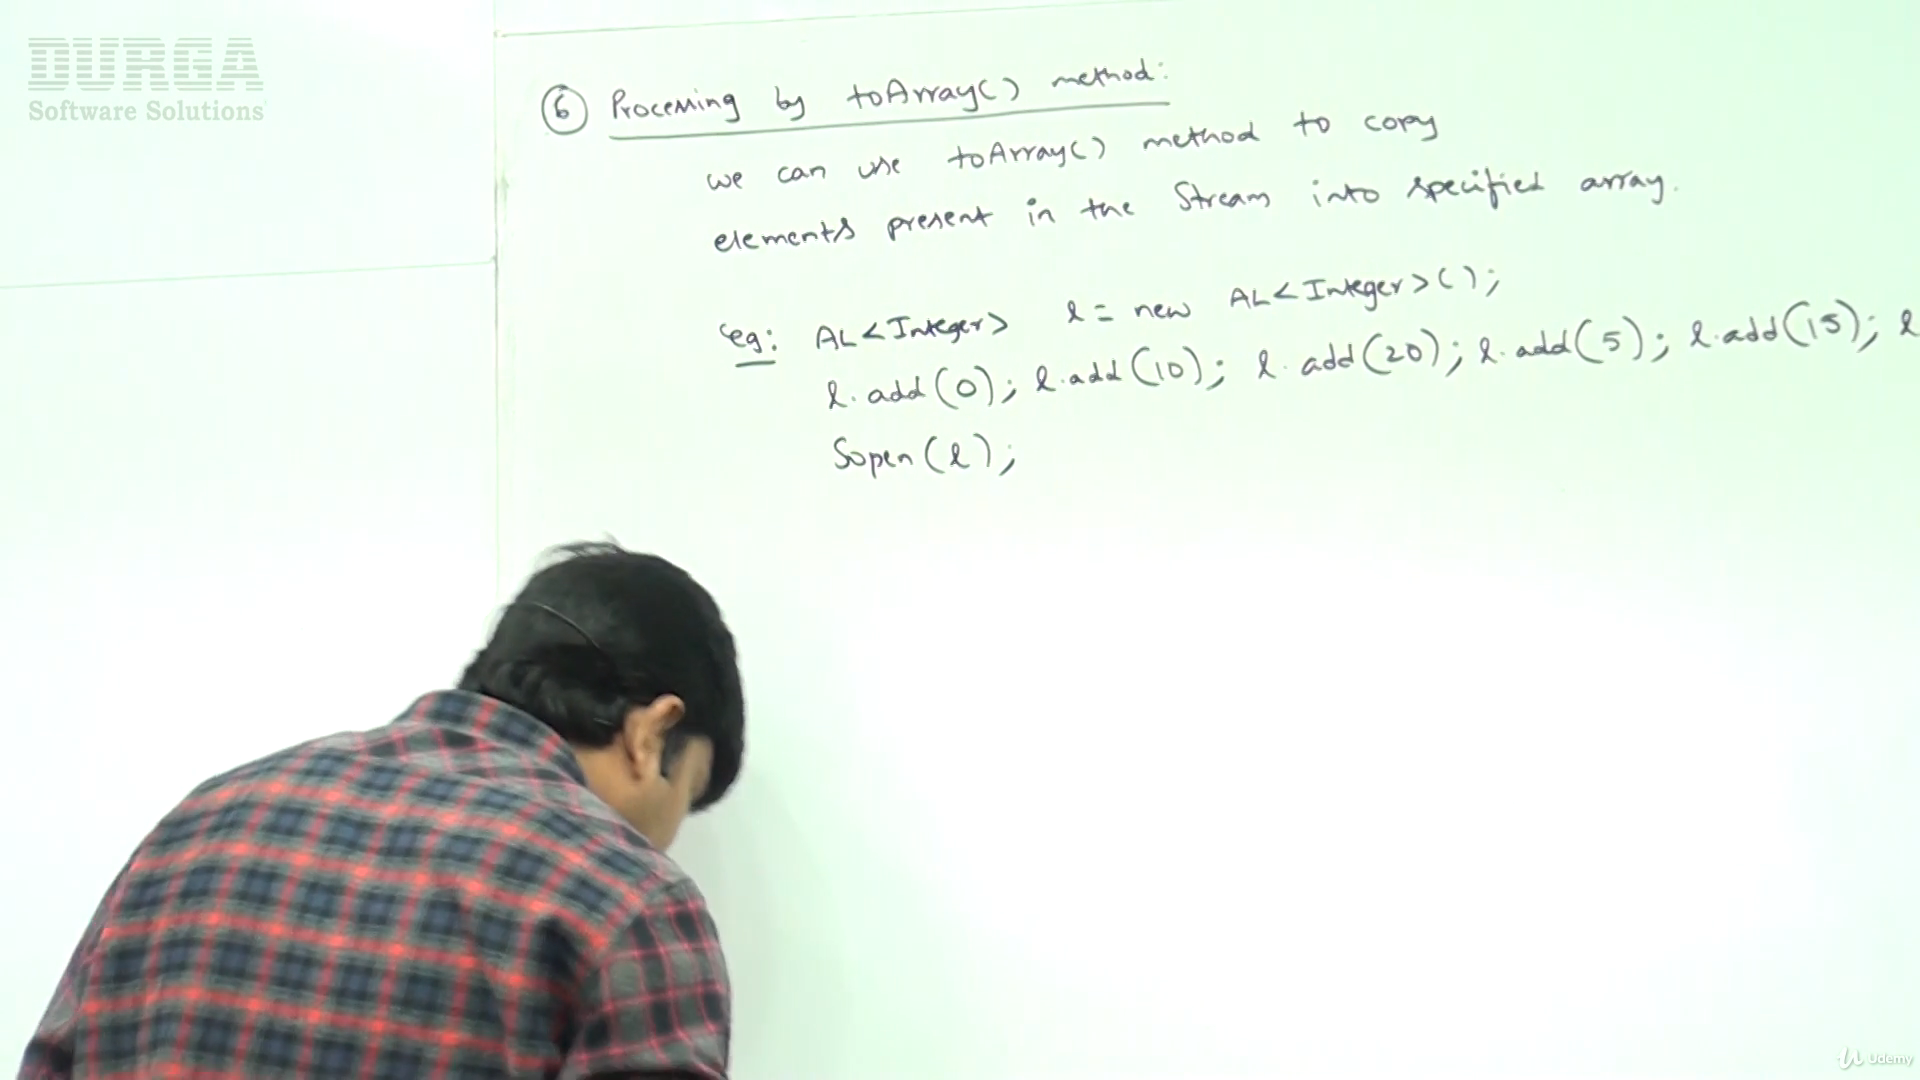 DURGA
Software Solutions
6 Processing by toArray() method:
we can use toArray() method to copy
elements present in the Stream into specified array.
eg: AL<Integer> l = new AL<Integer>();
l.add(0); l.add(10); l.add(20); l.add(5); l.add(15); l
Sopln(l);
Udemy